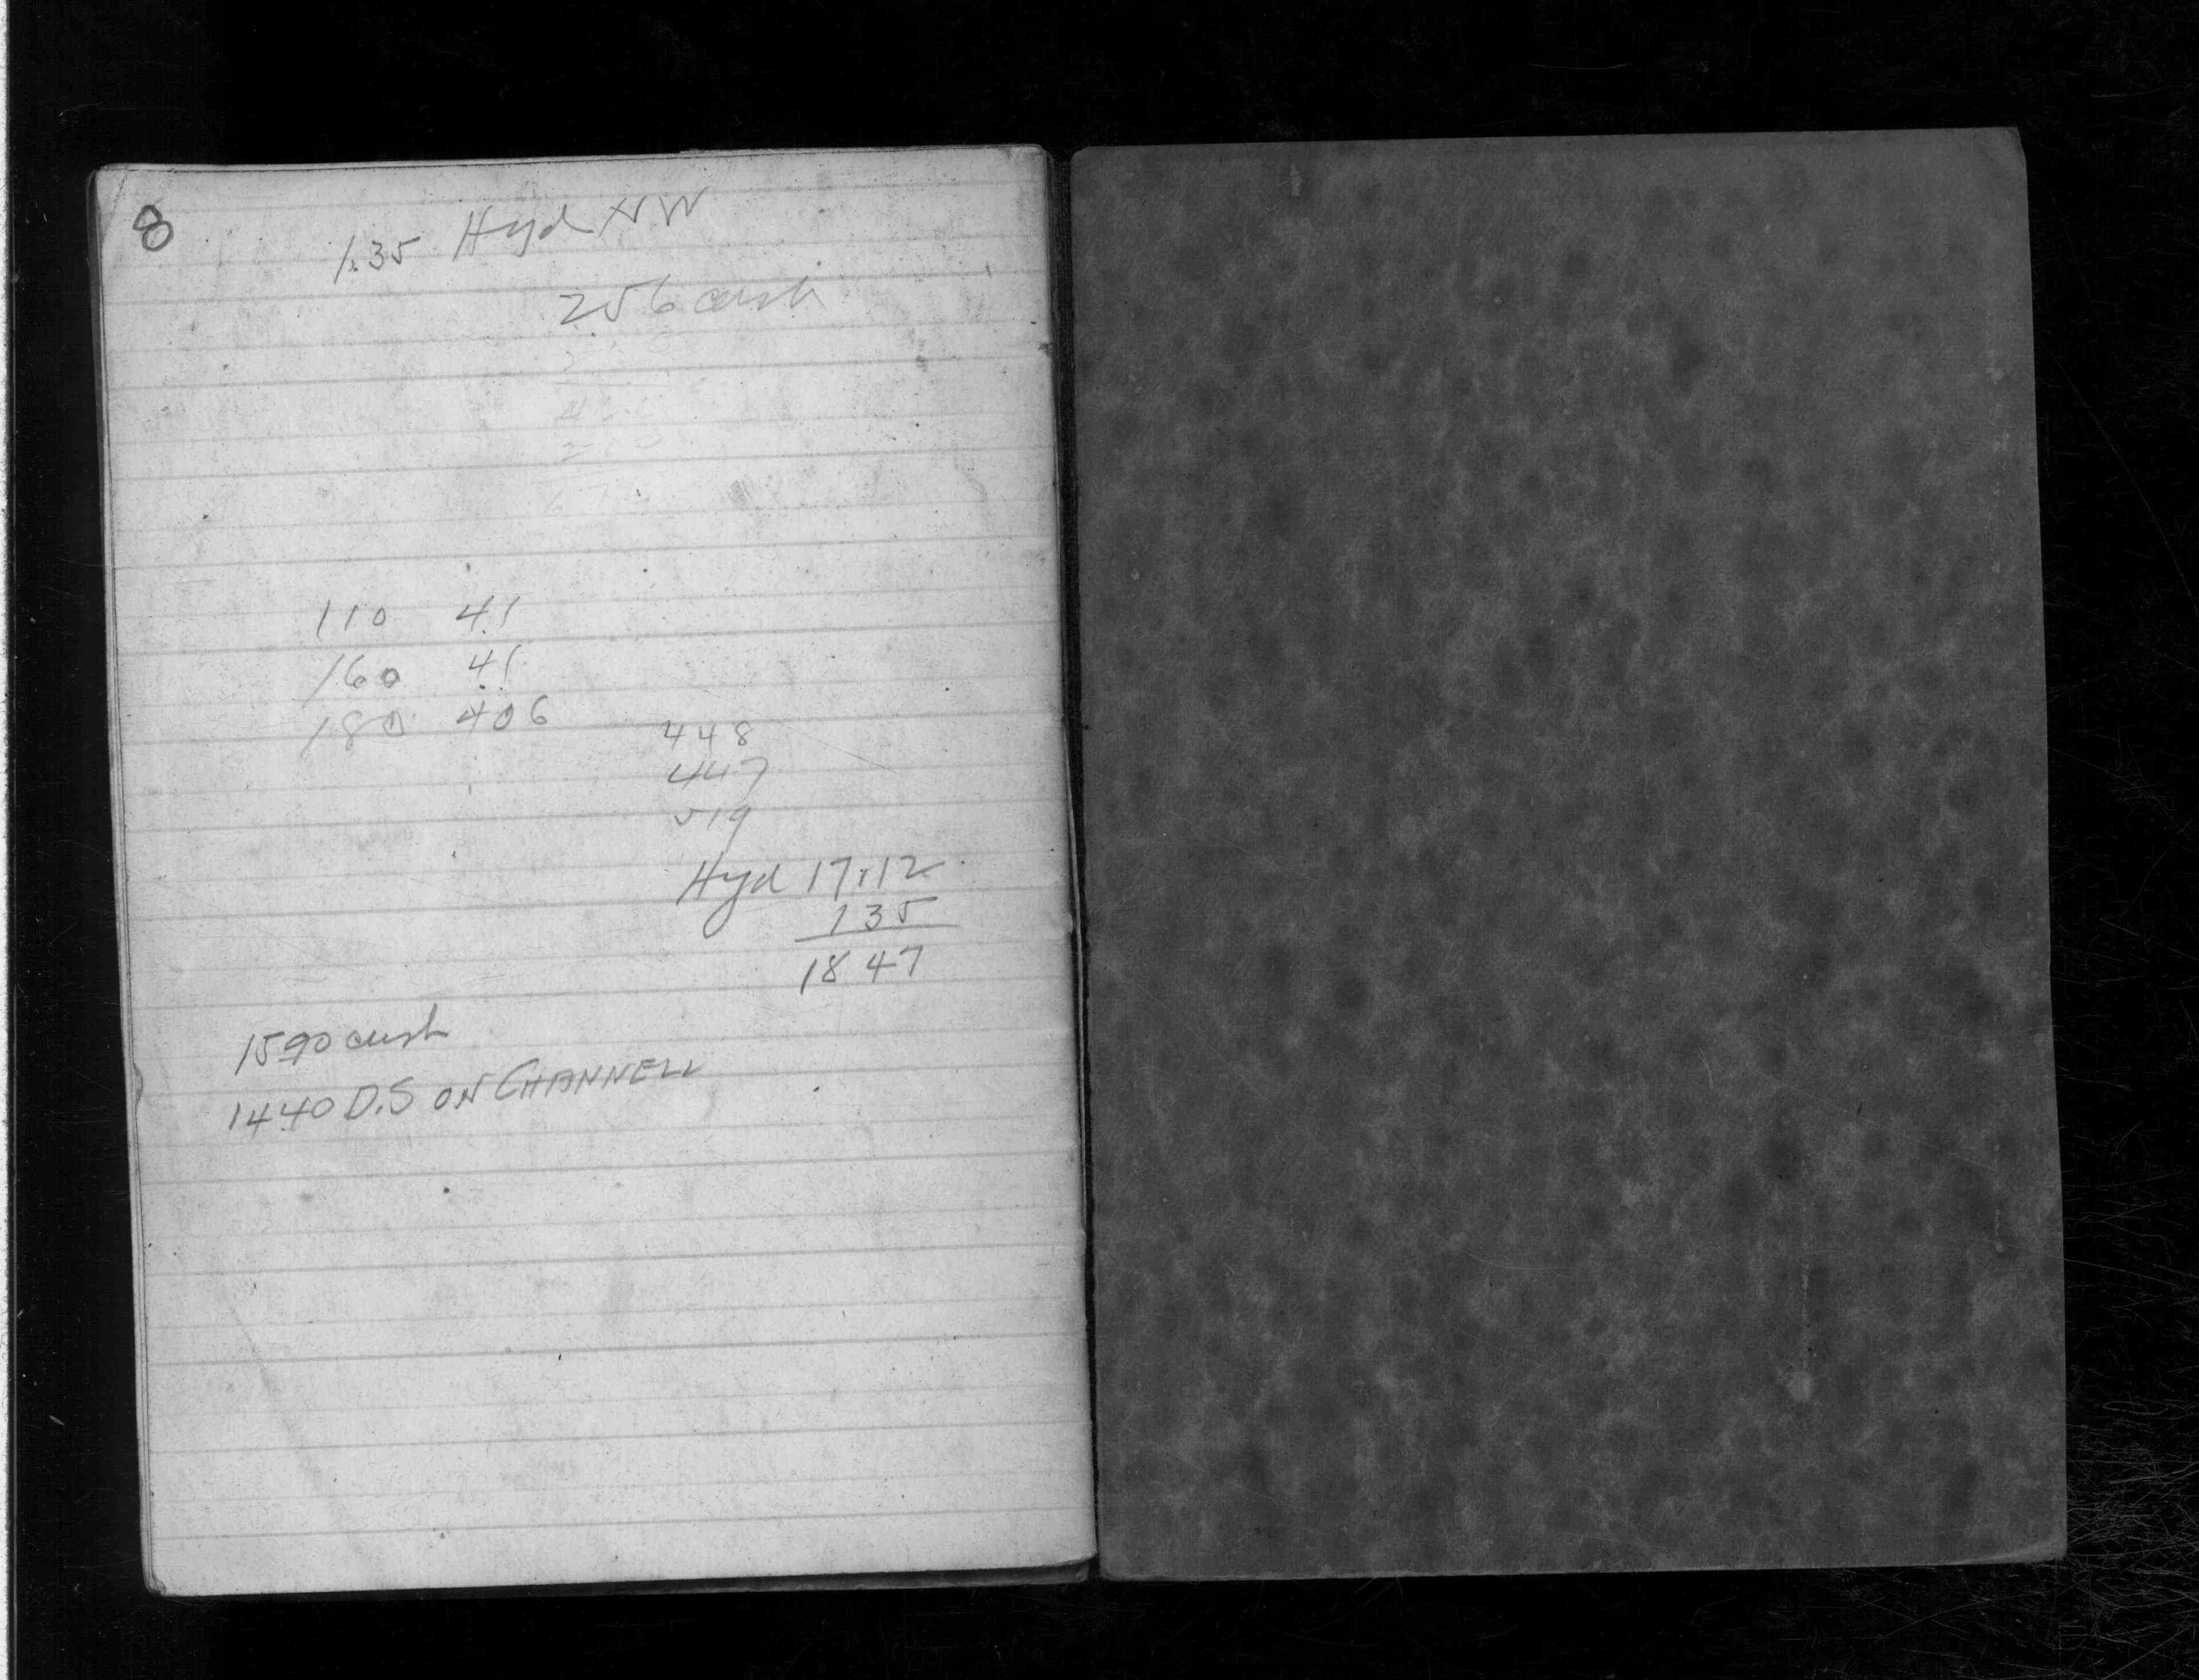 8
1.35 Hyd NW
256 cush
110 41
160 41
180 406
448
447
519
Hyd 17.12
135
1847
1590 cush
1440 D.S ON CHANNELL